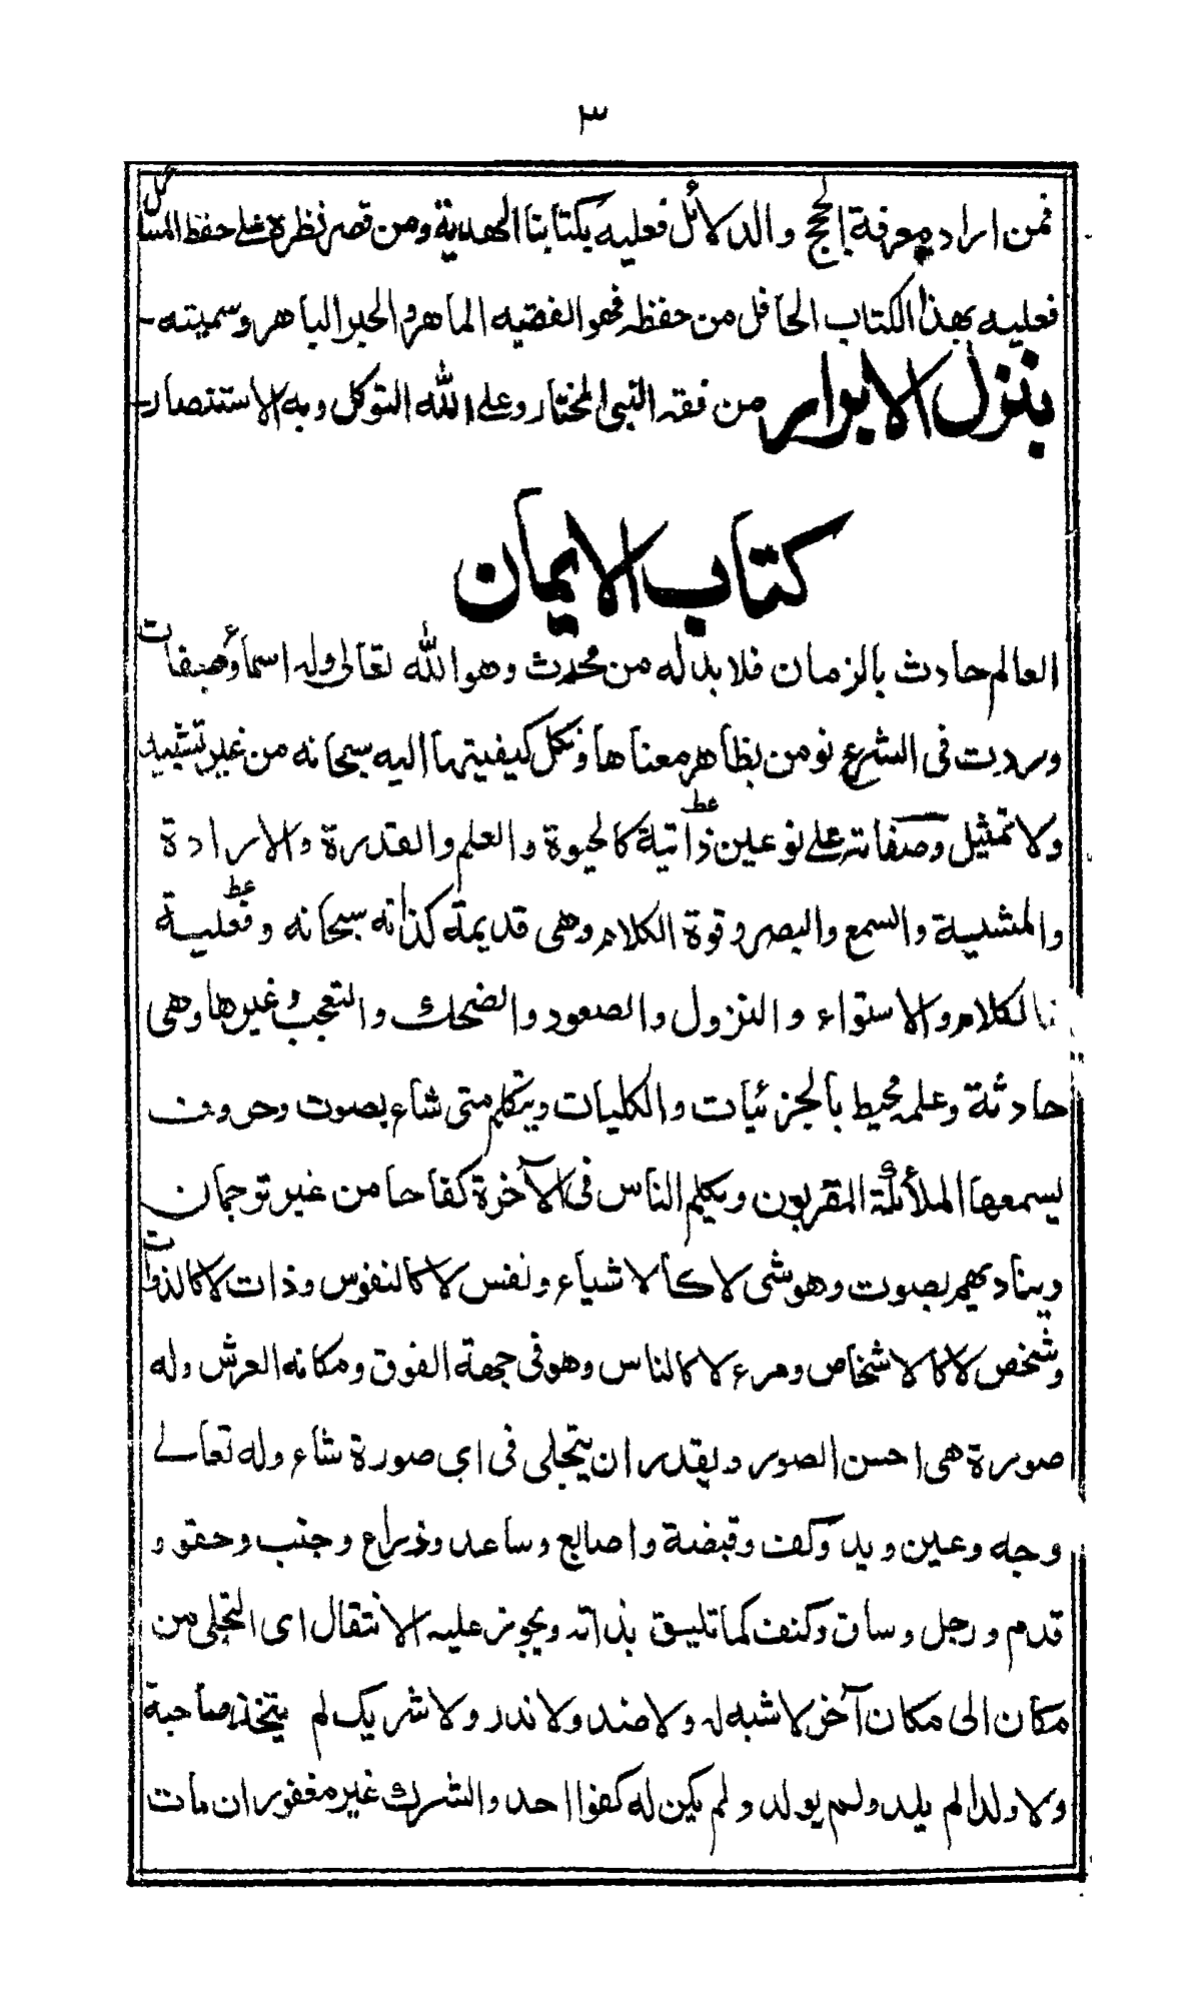 ٣
فمن اراد معرفة الحجج والدلائل فعليه بكتابنا الهدية ومن قصر نظره على حفظ المسائل
فعليه بهذا الكتاب الحافل من حفظه فهو الفقيه الماهر والحبر الباهر وسميته
بنزل الابرار من فقه النبي المختار وعلى الله التوكل وبه الاستنصار
كتاب الايمان
العالم حادث بالزمان فلا بد له من محدث وهو الله تعالى وله اسماء وصفات
وردت في الشرع نومن بظاهر معناها ونكل كيفيتها اليه سبحانه من غير تشبيه
ولا تمثيل وصفاته على نوعين ذاتية كالحيوة والعلم والقدرة والارادة
والمشية والسمع والبصر وقوة الكلام وهي قديمة كذاته سبحانه وفعلية
كالكلام والاستواء والنزول والصعود والضحك والتعجب وغيرها وهي
حادثة وعلمه محيط بالجزئيات والكليات ويتكلم متى شاء بصوت وحروف
يسمعها الملائكة المقربون ويكلم الناس في الآخرة كفاحا من غير ترجمان
ويناديهم بصوت وهو شي لا كالاشياء ونفس لا كالنفوس وذات لا كالذوات
وشخص لا كالاشخاص ومرء لا كالناس وهو في جهة الفوق ومكانه العرش وله
صورة هي احسن الصور ويقدر ان يتجلى في اي صورة شاء وله تعالى
وجه وعين ويد وكف وقبضة واصابع وساعد وذراع وجنب وحقو و
قدم ورجل وساق وكنف كما تليق بذاته ويجوز عليه الانتقال اى التجلي من
مكان الى مكان آخر لا شبه له ولا ضد ولا ند ولا شريك لم يتخذ صاحبة
ولا ولدا لم يلد ولم يولد ولم يكن له كفوا احد والشرك غير مغفور ان مات